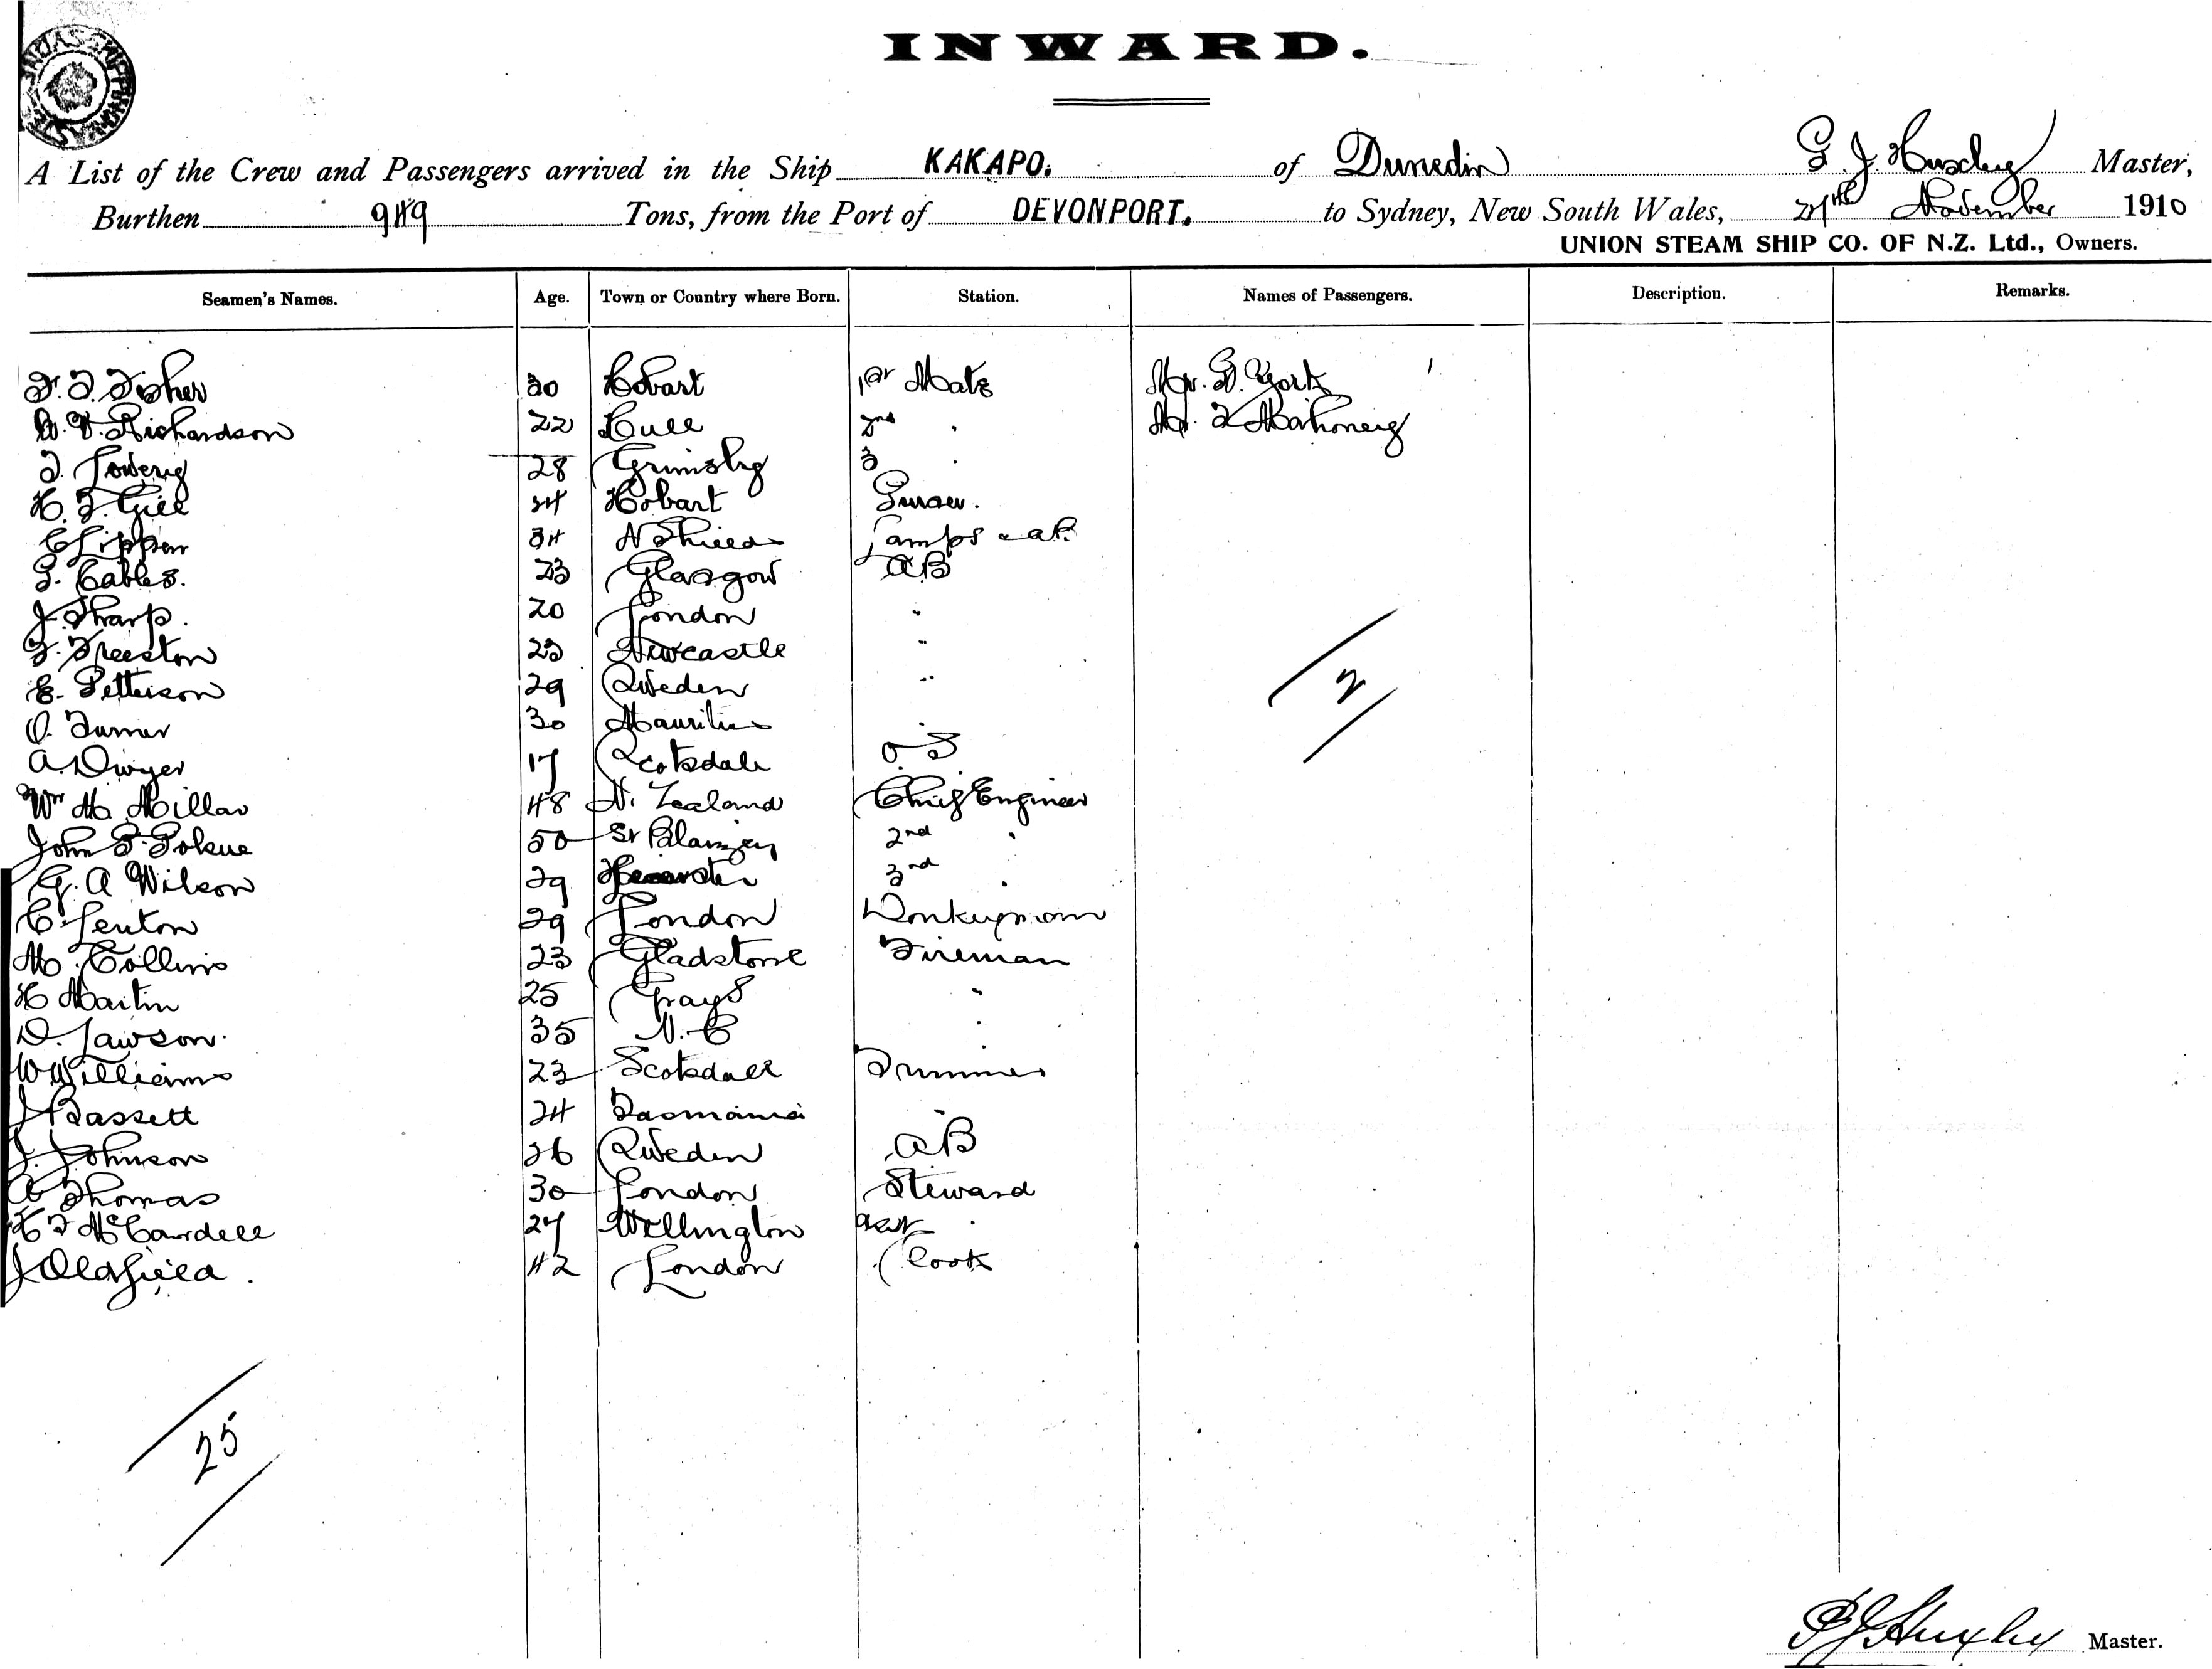 INWARD.
A List of the Crew and Passengers arrived in the Ship KAKAPO. of Dunedin G J. Huxley Master,
Burthen 949 Tons, from the Port of DEVONPORT. to Sydney, New South Wales, November 1910
UNION STEAM SHIP CO. OF N.Z. Ltd., Owners.
Seamen's Names. Age. Town or Country where Born. Station. Names of Passengers. Description. Remarks.
F. T. Fisher 30 Hobart 1st Mate Mr. York
Richardson 22 Hull 2nd " Mr. Mahoney
Lowery 28 Grimsby 3 "
H. Gill Hobart Purser.
C Lippen 34 N Shields Lamps
Cables. 23 Glasgow AB
J. Sharp. 20 London "
F. Freeston 23 Newcastle "
E. Petterson 29 Sweden "
O. Turner 30 Mauritius "
A. Dwyer 17 Scotsdale O.S.
Wm Mc Millan 48 N. Zealand Chief Engineer
John 50 St 2nd "
G. A Wilson 29 3rd "
C. Fenton 29 London Donkeyman
M. Collins 23 Gladstone Fireman
H Martin 25 Grays "
D. Lawson. 35 N. C "
W Williams 23 Scotsdale Trimmer
J Bassett 24 Tasmania "
J. Johnson 26 Sweden AB
A Thomas 30 London Steward
H F McCardell 27 Wellington Asst "
J Oldfield. 42 London Cook
2
25
G J Huxley Master.